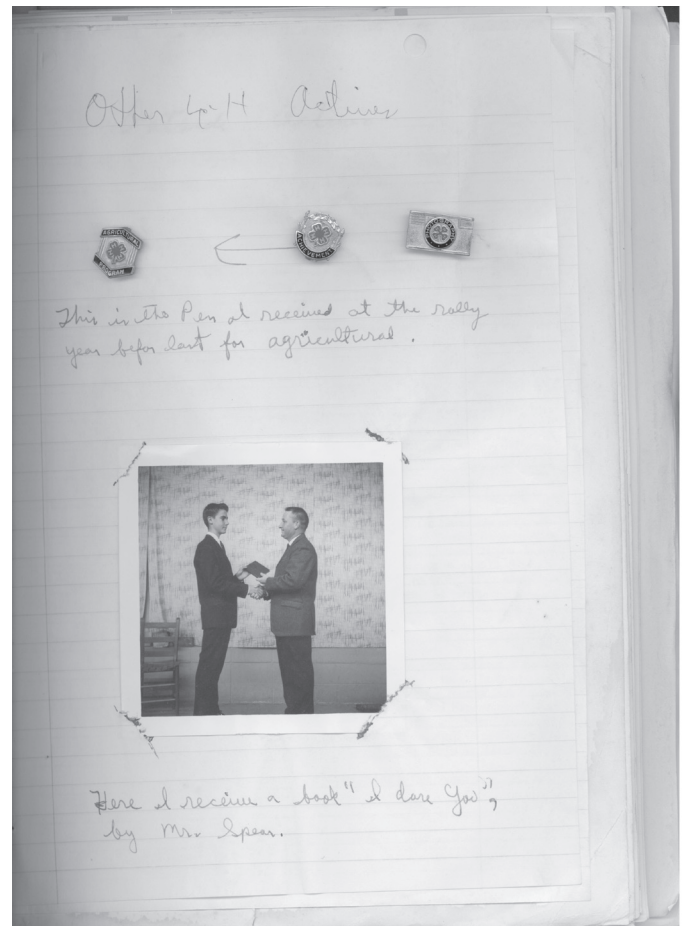 Other 4-H Actives
AGRICULTURAL
PROGRAM
ACHIEVEMENT
PHOTOGRAPHY
This is the Pen I received at the rally
year befor last for agricultural.
Here I receive a book "I dare You",
by Mr. Spear.